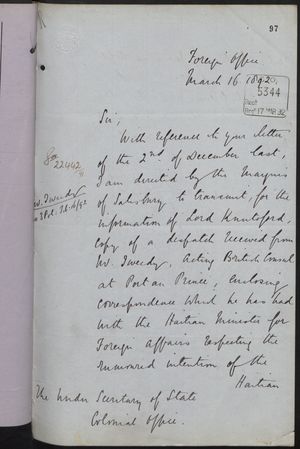 97
Foreign Office
March 16 1892.
5344
Rec
Reg 17 MAR 92
Sir,
With reference to your letter
of the 2nd of December last,
I am directed by the Marquis
of Salisbury to transmit, for the
information of Lord Knutsford,
copy of a despatch received from
Mr. Tweedy, Acting British Consul
at Port au Prince, enclosing
correspondence which he has had
with the Haitian Minister for
Foreign Affairs respecting the
rumoured intention of the
Haitian
The Under Secretary of State
Colonial Office.
22442
Tweedy